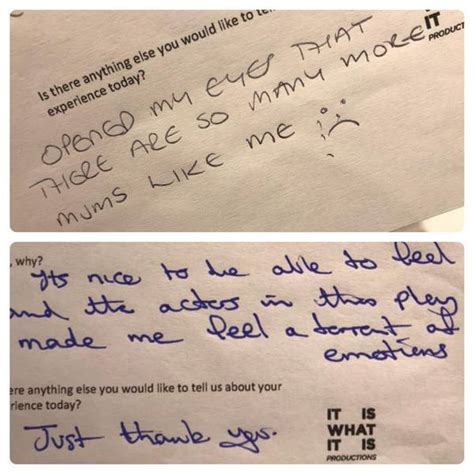 Is there anything else you would like to te
experience today?
IT
PRODUCT
OPENED MY EYES THAT
THERE ARE SO MANY MORE
MUMS LIKE ME
, why?
Its nice to be able to feel
and the actors in this play
made me feel a torrent of
emotions
ere anything else you would like to tell us about your
rience today?
Just thank you.
IT IS
WHAT
IT IS
PRODUCTIONS